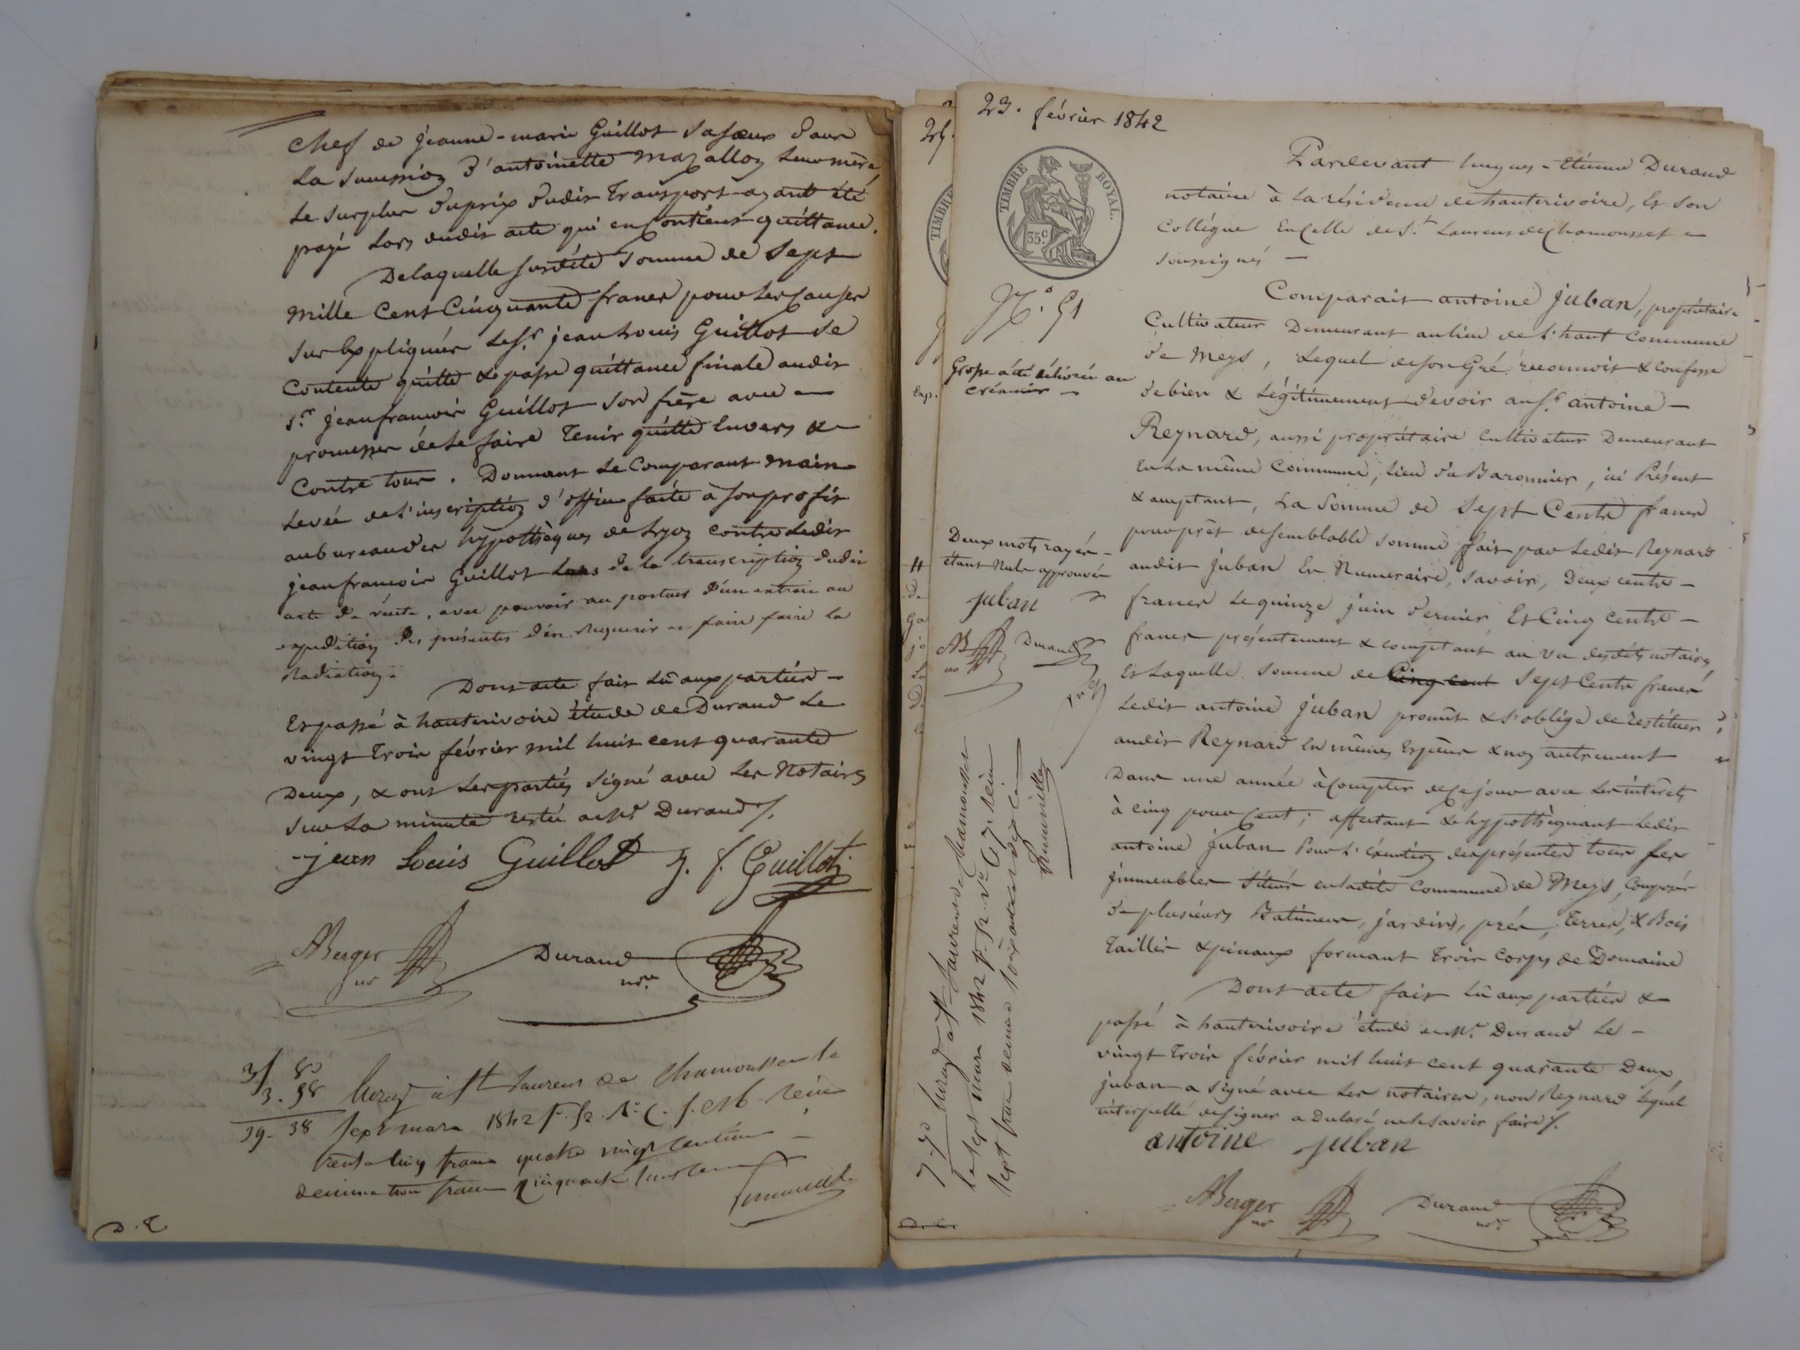 chef de jeanne-marie Guillot sa sœur dans
La succession d'antoinette Mazallon Leur mère,
Le surplus du prix dudit Transport ayant été
payé Lors dudit acte qui en Contient quittance.
De laquelle susdite somme de Sept
mille Cent Cinquante francs pour les causes
sus Expliquées Le sr. jean Louis Guillot se
Contente quitte & passe quittance finale audit
sr. jean francois Guillot son frère avec
promesse de le faire Tenir quitte Envers &
Contre tous. Donnant Le Comparant main
Levée de l'inscription d'office faite à son profit
au bureau des hypothèques de Lyon contre Ledit
jean francois Guillot Lors de la transcription dudit
acte de vente, avec pouvoir au porteur d'un extrait ou
expédition des présentes d'en requerir et faire faire la
Radiation.
Dont acte fait Lû aux parties
Et passé à hauterivoire étude de Durand Le
vingt trois février mil huit cent quarante
Deux, & ont Les parties signé avec Les Notaires
sur La minute restée à Me Durand /.
jean Louis Guillot J. f. Guillot
ABerger nre Durand nre.
31 80
3. 58
39. 38
Enreg à St Laurent de Chamousset le
sept mars 1842 f.
trente cinq francs quatre vingt centimes
décime trois francs cinquante huit cent
D. C.
23. février 1842
TIMBRE ROYAL.
35c
No. 51
Grosse a été délivrée au
créancier
Deux mots rayés
étant Nuls approuvés
juban
AB nre Durand
7 70 Enreg à St Laurent de Chamousset
Le sept mars 1842 f.
sept francs décime soixante dix c
Pardevant Mes - Etienne Durand
notaire à La résidence de hauterivoire, Et son
Collègue En Celle de St. Laurent de Chamousset
soussignés
Comparait antoine juban, propriétaire
Cultivateur Demeurant au lieu de L'haut Commune
de Meys, Lequel de son Gré reconnoit & Confesse
de bien & Légitimement devoir au sr. antoine
Reynard, aussi propriétaire Cultivateur Demeurant
En La même Commune, Lieu du Baronnier, ici Présent
& acceptant, La Somme de Sept Cents francs
pour prêt de semblable somme fait par Ledit Reynard
audit juban En Numeraire, savoir, Deux cents
francs Le quinze juin dernier Et Cinq cents
francs présentement & comptant au vu desdits notaires
Et Laquelle somme de Cinq cent Sept Cents francs
Ledit antoine juban promet & s'oblige de restituer
audit Reynard En mêmes Espèces & non autrement
Dans une année à compter de ce jour avec Les intérêts
à cinq pour Cent; affectant & hypothèquant Ledit
antoine juban Pour L'Exécution des présentes tous ses
jmmeubles situés en ladite Commune de Meys, Composés
de plusieurs Batimens, jardins, prés, Terres, & Bois
Taillis & pinaux formant Trois Corps de Domaine
Dont acte fait Lû aux parties &
passé à hauterivoire étude de Me. Durand Le
vingt Trois février mil huit cent quarante Deux
juban a signé avec Les notaires, non Reynard Lequel
interpellé de signer a Déclaré ne le savoir faire /.
antoine juban
ABerger nre Durand nre